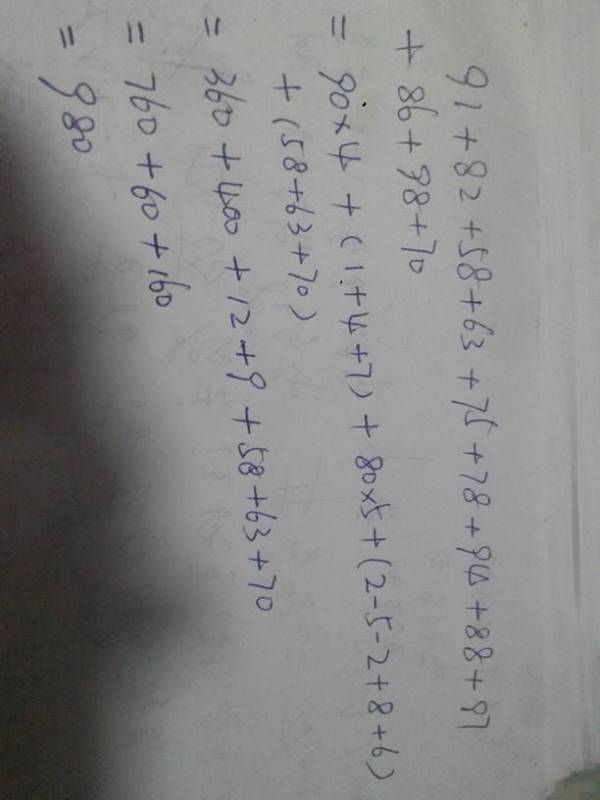 91+82+58+63+75+78+94+88+97
+86+98+70
= 90×4+(1+4+7)+80×5+(2-5-2+8+6)
+(58+63+70)
= 360+400+12+9+58+63+70
= 760+60+160
= 980